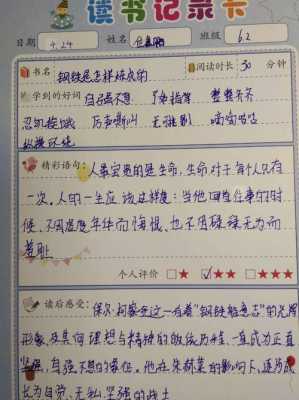 读书记录卡
日期 4.24 姓名 班级 6.2
书名 钢铁是怎样炼成的 阅读时长: 30 分钟
学到的好词 自强不息 了如指掌 整整齐齐
忍饥挨饿 厉声嘶叫 嘀嘀咕咕
精彩语句: 人最宝贵的是生命,生命对于每个人只有
一次。人的一生应该这样度:当他回首往事的时
候,不因虚度年华而悔恨,也不因碌碌无为而
羞耻
个人评价 ★ ✓★★ ★★★
读后感受: 保尔·柯察金这一有着"钢铁般意志"的光辉
形象,及其向理想与精神的 历程,一直成为正直
坚强,自强不息的 。他在朱赫莱的影响下,逐步成
长为自觉、无私、坚强的战士